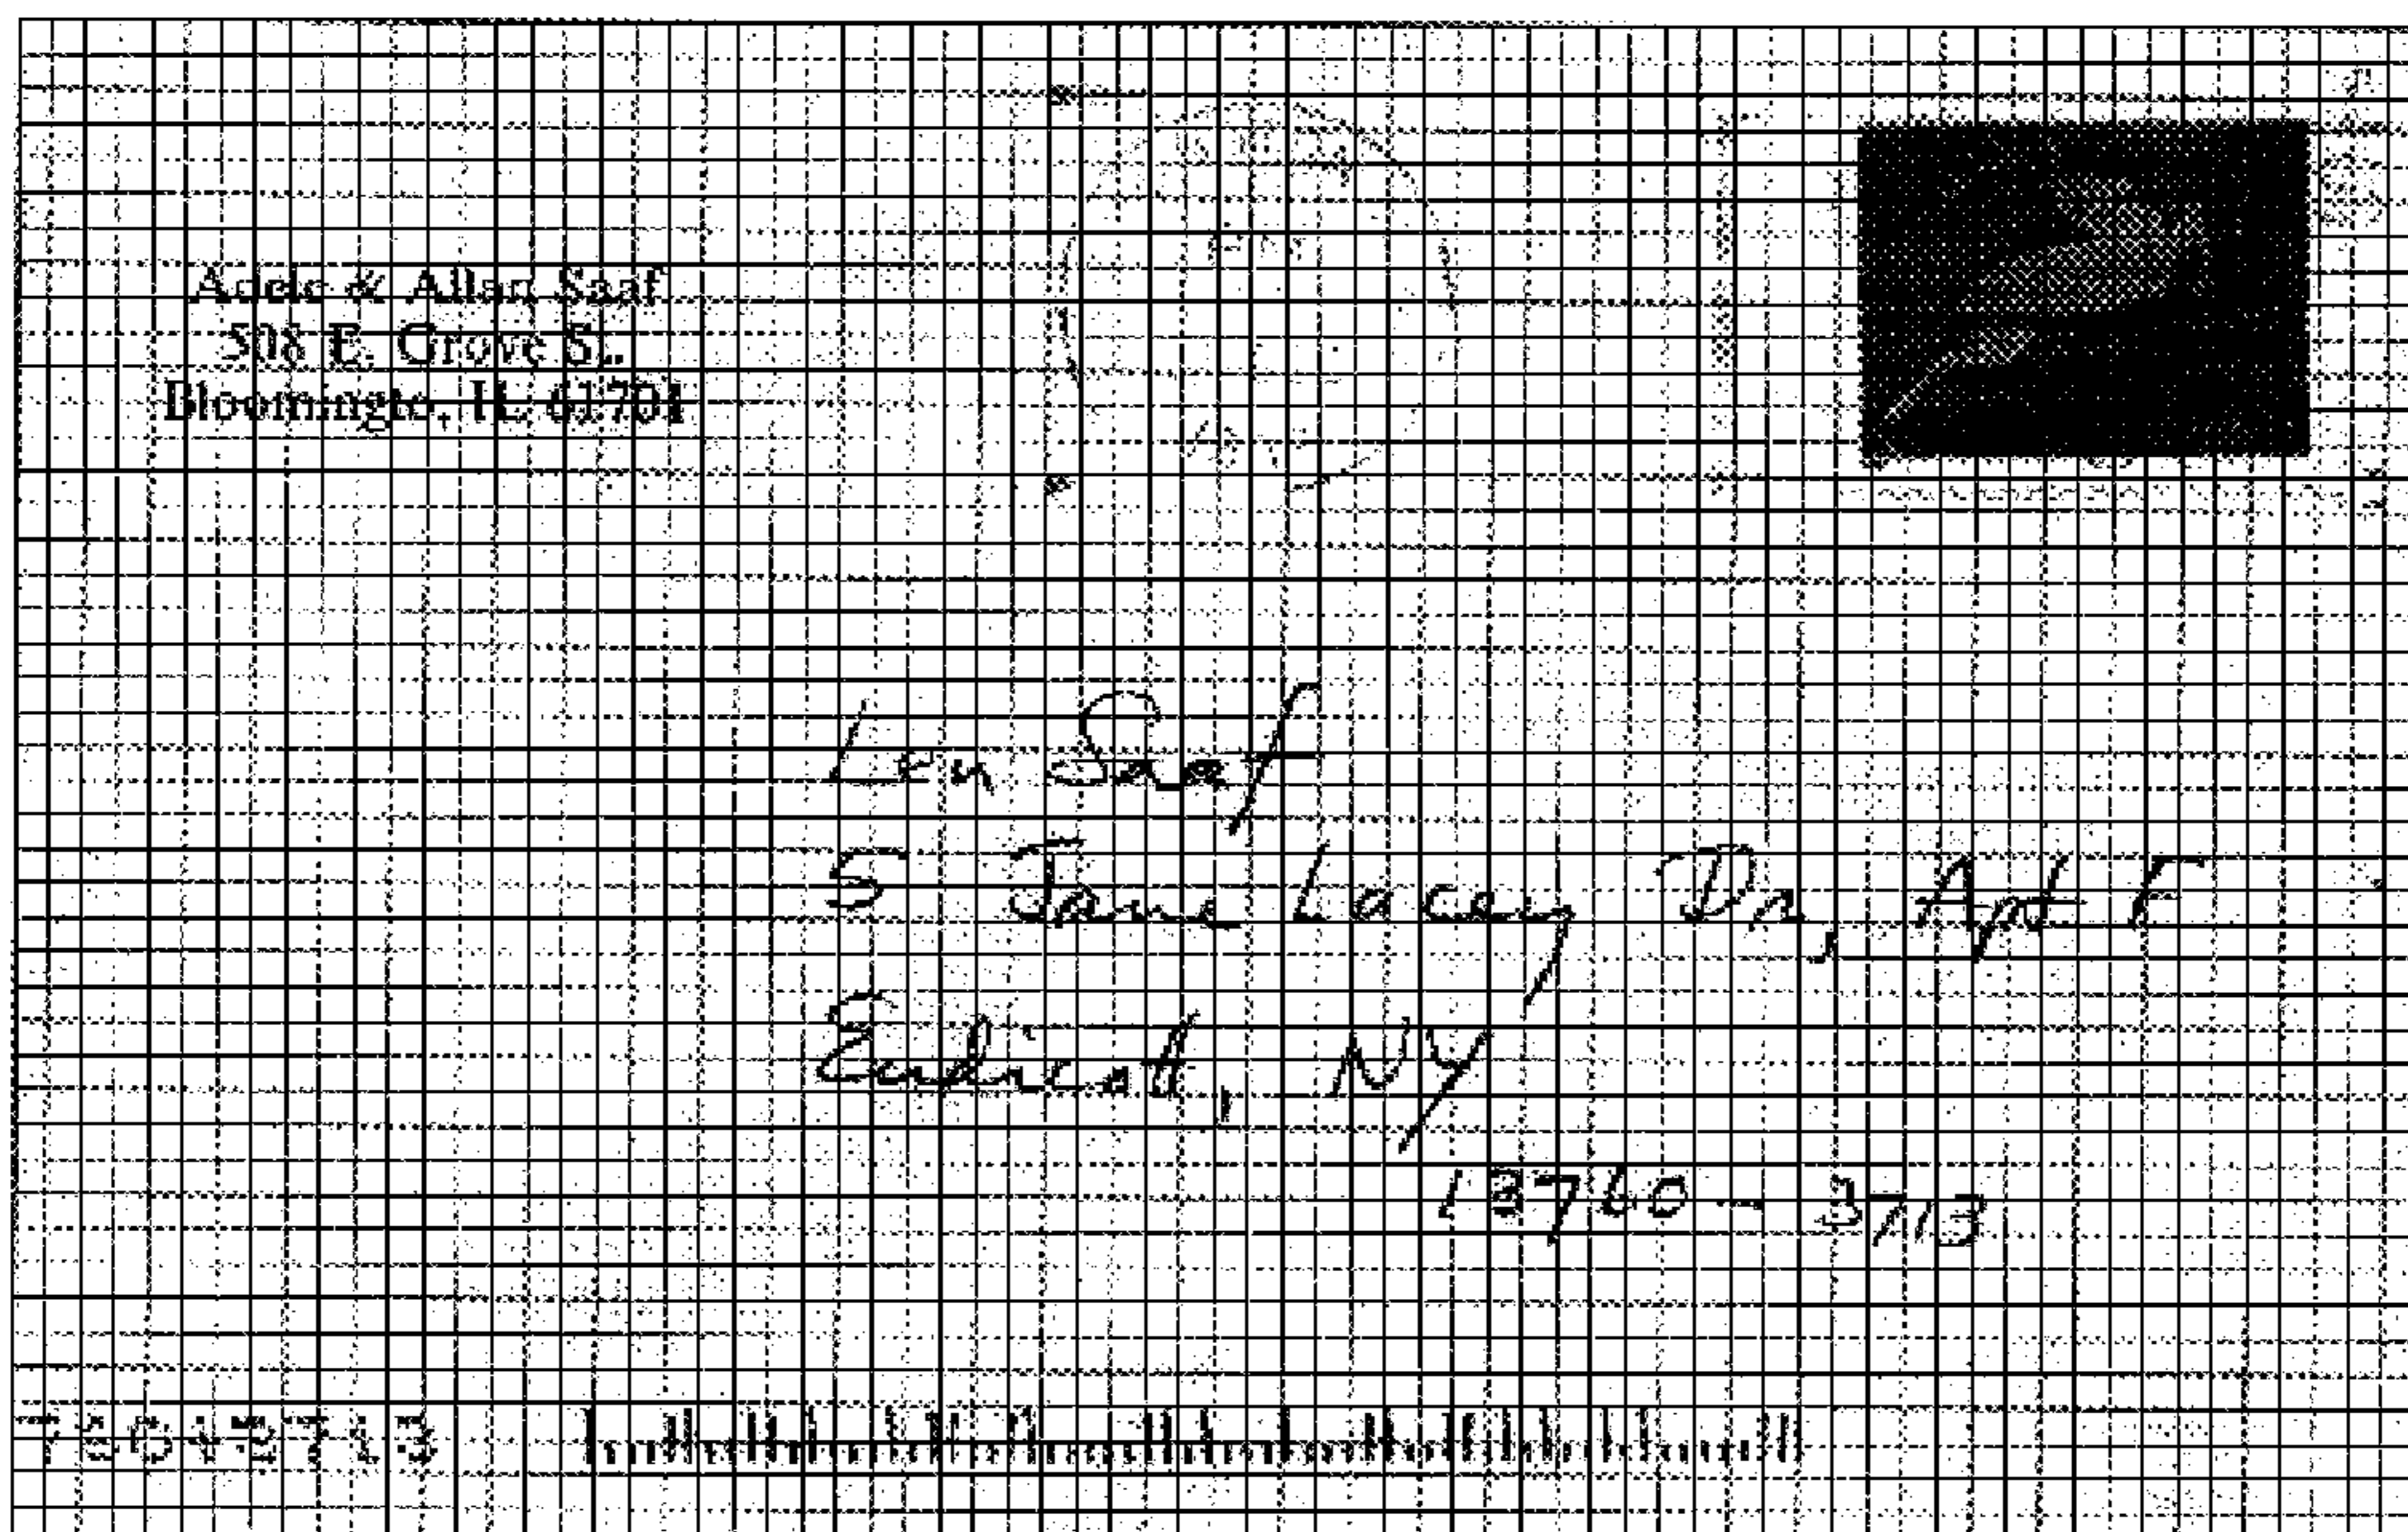 Adele & Allan Saaf
508 E. Grove St.
Bloomingto, IL 61701
Len Saaf
5 Jane Lacey Dr, Apt F
Endicott, NY
13760 - 3713